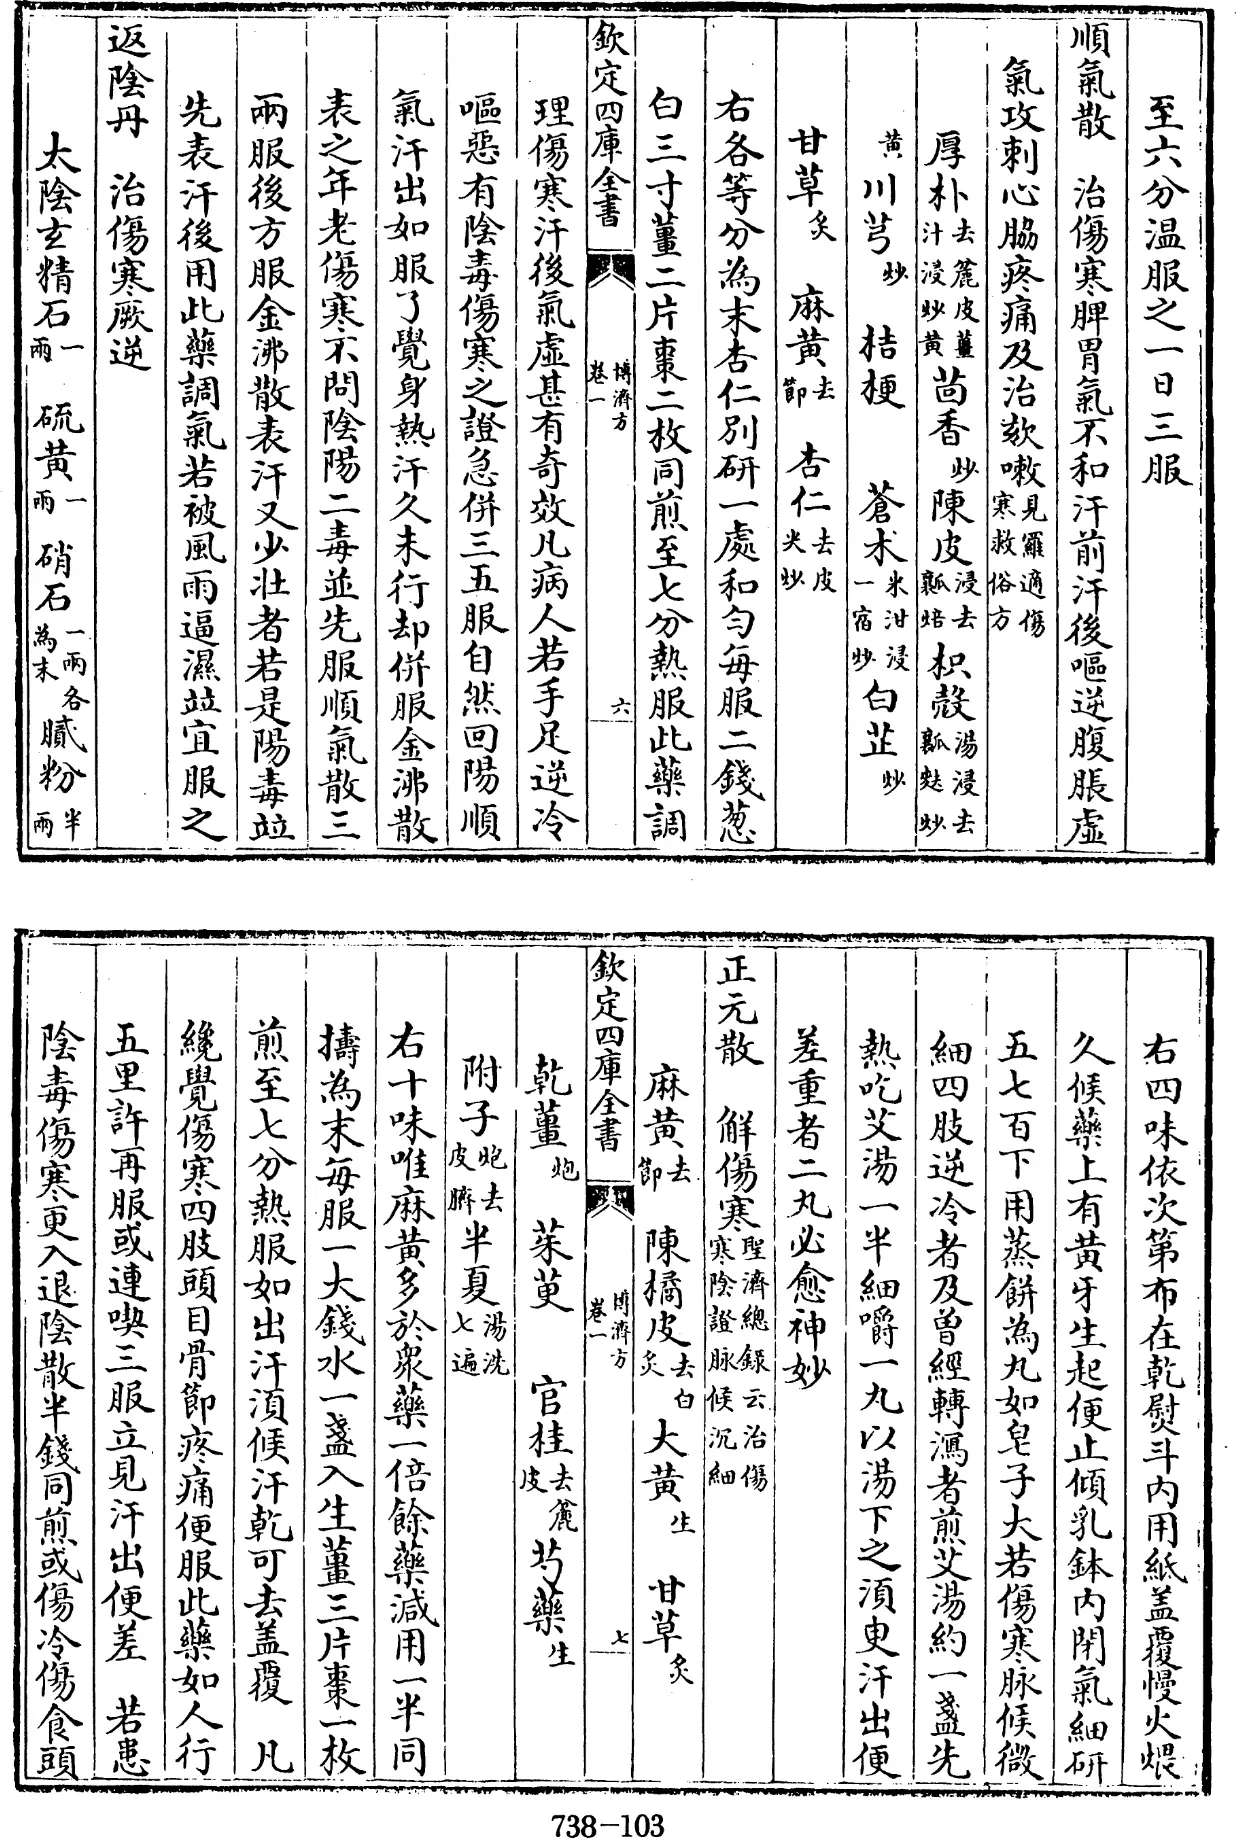 至六分温服之一日三服
順氣散　治傷寒脾胃氣不和汗前汗後嘔逆腹脹虛
氣攻刺心脇疼痛及治欬嗽見羅適傷寒救俗方
厚朴去麄皮薑汁浸炒黄　茴香炒　陳皮浸去瓤焙　枳殼湯浸去瓤麩炒
黄　川芎炒　桔梗　蒼朮米泔浸一宿炒　白芷炒
甘草炙　麻黄去節　杏仁去皮尖炒
右各等分為末杏仁別研一處和勻每服二錢葱
白三寸薑二片棗二枚同煎至七分熱服此藥調
欽定四庫全書　博濟方卷一　六
理傷寒汗後氣虛甚有奇效凡病人若手足逆冷
嘔惡有陰毒傷寒之證急併三五服自然回陽順
氣汗出如服了覺身熱汗久未行却併服金沸散
表之年老傷寒不問陰陽二毒並先服順氣散三
兩服後方服金沸散表汗又少壯者若是陽毒竝
先表汗後用此藥調氣若被風雨逼濕竝宜服之
返陰丹　治傷寒厥逆
太陰玄精石一兩　硫黄一兩　硝石一兩各為末　膩粉半兩
右四味依次第布在乾熨斗内用紙盖覆慢火煨
久候藥上有黄牙生起便止傾乳鉢内閉氣細研
五七百下用蒸餅為丸如皂子大若傷寒脉候微
細四肢逆冷者及曾經轉瀉者煎艾湯約一盞先
熱吃艾湯一半細嚼一丸以湯下之須臾汗出便
差重者二丸必愈神妙
正元散　解傷寒聖濟總錄云治傷寒陰證脉候沉細
麻黄去節　陳橘皮去白炙　大黄生　甘草炙
欽定四庫全書　博濟方卷一　七
乾薑炮　茱萸　官桂去麄皮　芍藥生
附子炮去皮臍　半夏湯洗七遍
右十味唯麻黄多於衆藥一倍餘藥減用一半同
擣為末每服一大錢水一盞入生薑三片棗一枚
煎至七分熱服如出汗須候汗乾可去盖覆　凡
纔覺傷寒四肢頭目骨節疼痛便服此藥如人行
五里許再服或連喫三服立見汗出便差　若患
陰毒傷寒更入退陰散半錢同煎或傷冷傷食頭
738-103